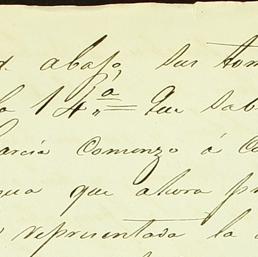 abajo, sus tom
la 14ª= Que sab
Garcia Comenzo á C
gua que ahora pr
representada la